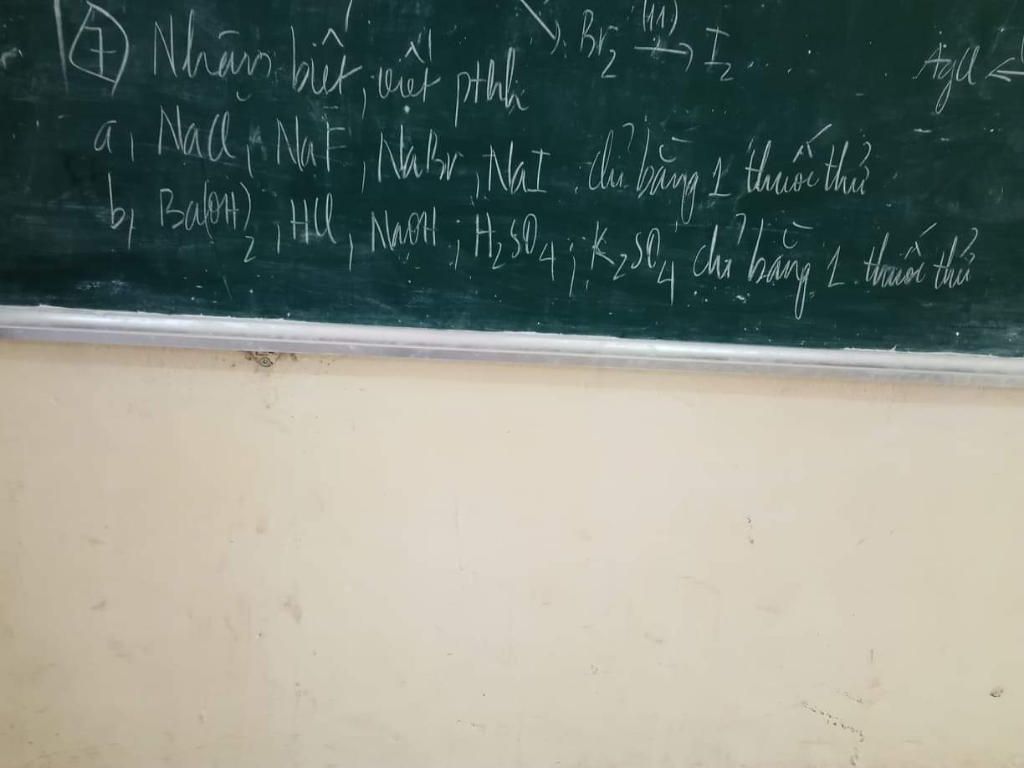 7 Nhận biết, viết pthh
Br2 (11) → I2
AgCl ←
a, NaCl, NaF, NaBr, NaI chỉ bằng 1 thuốc thử
b, Ba(OH)2, HCl, NaOH; H2SO4; K2SO4 chỉ bằng 1 thuốc thử